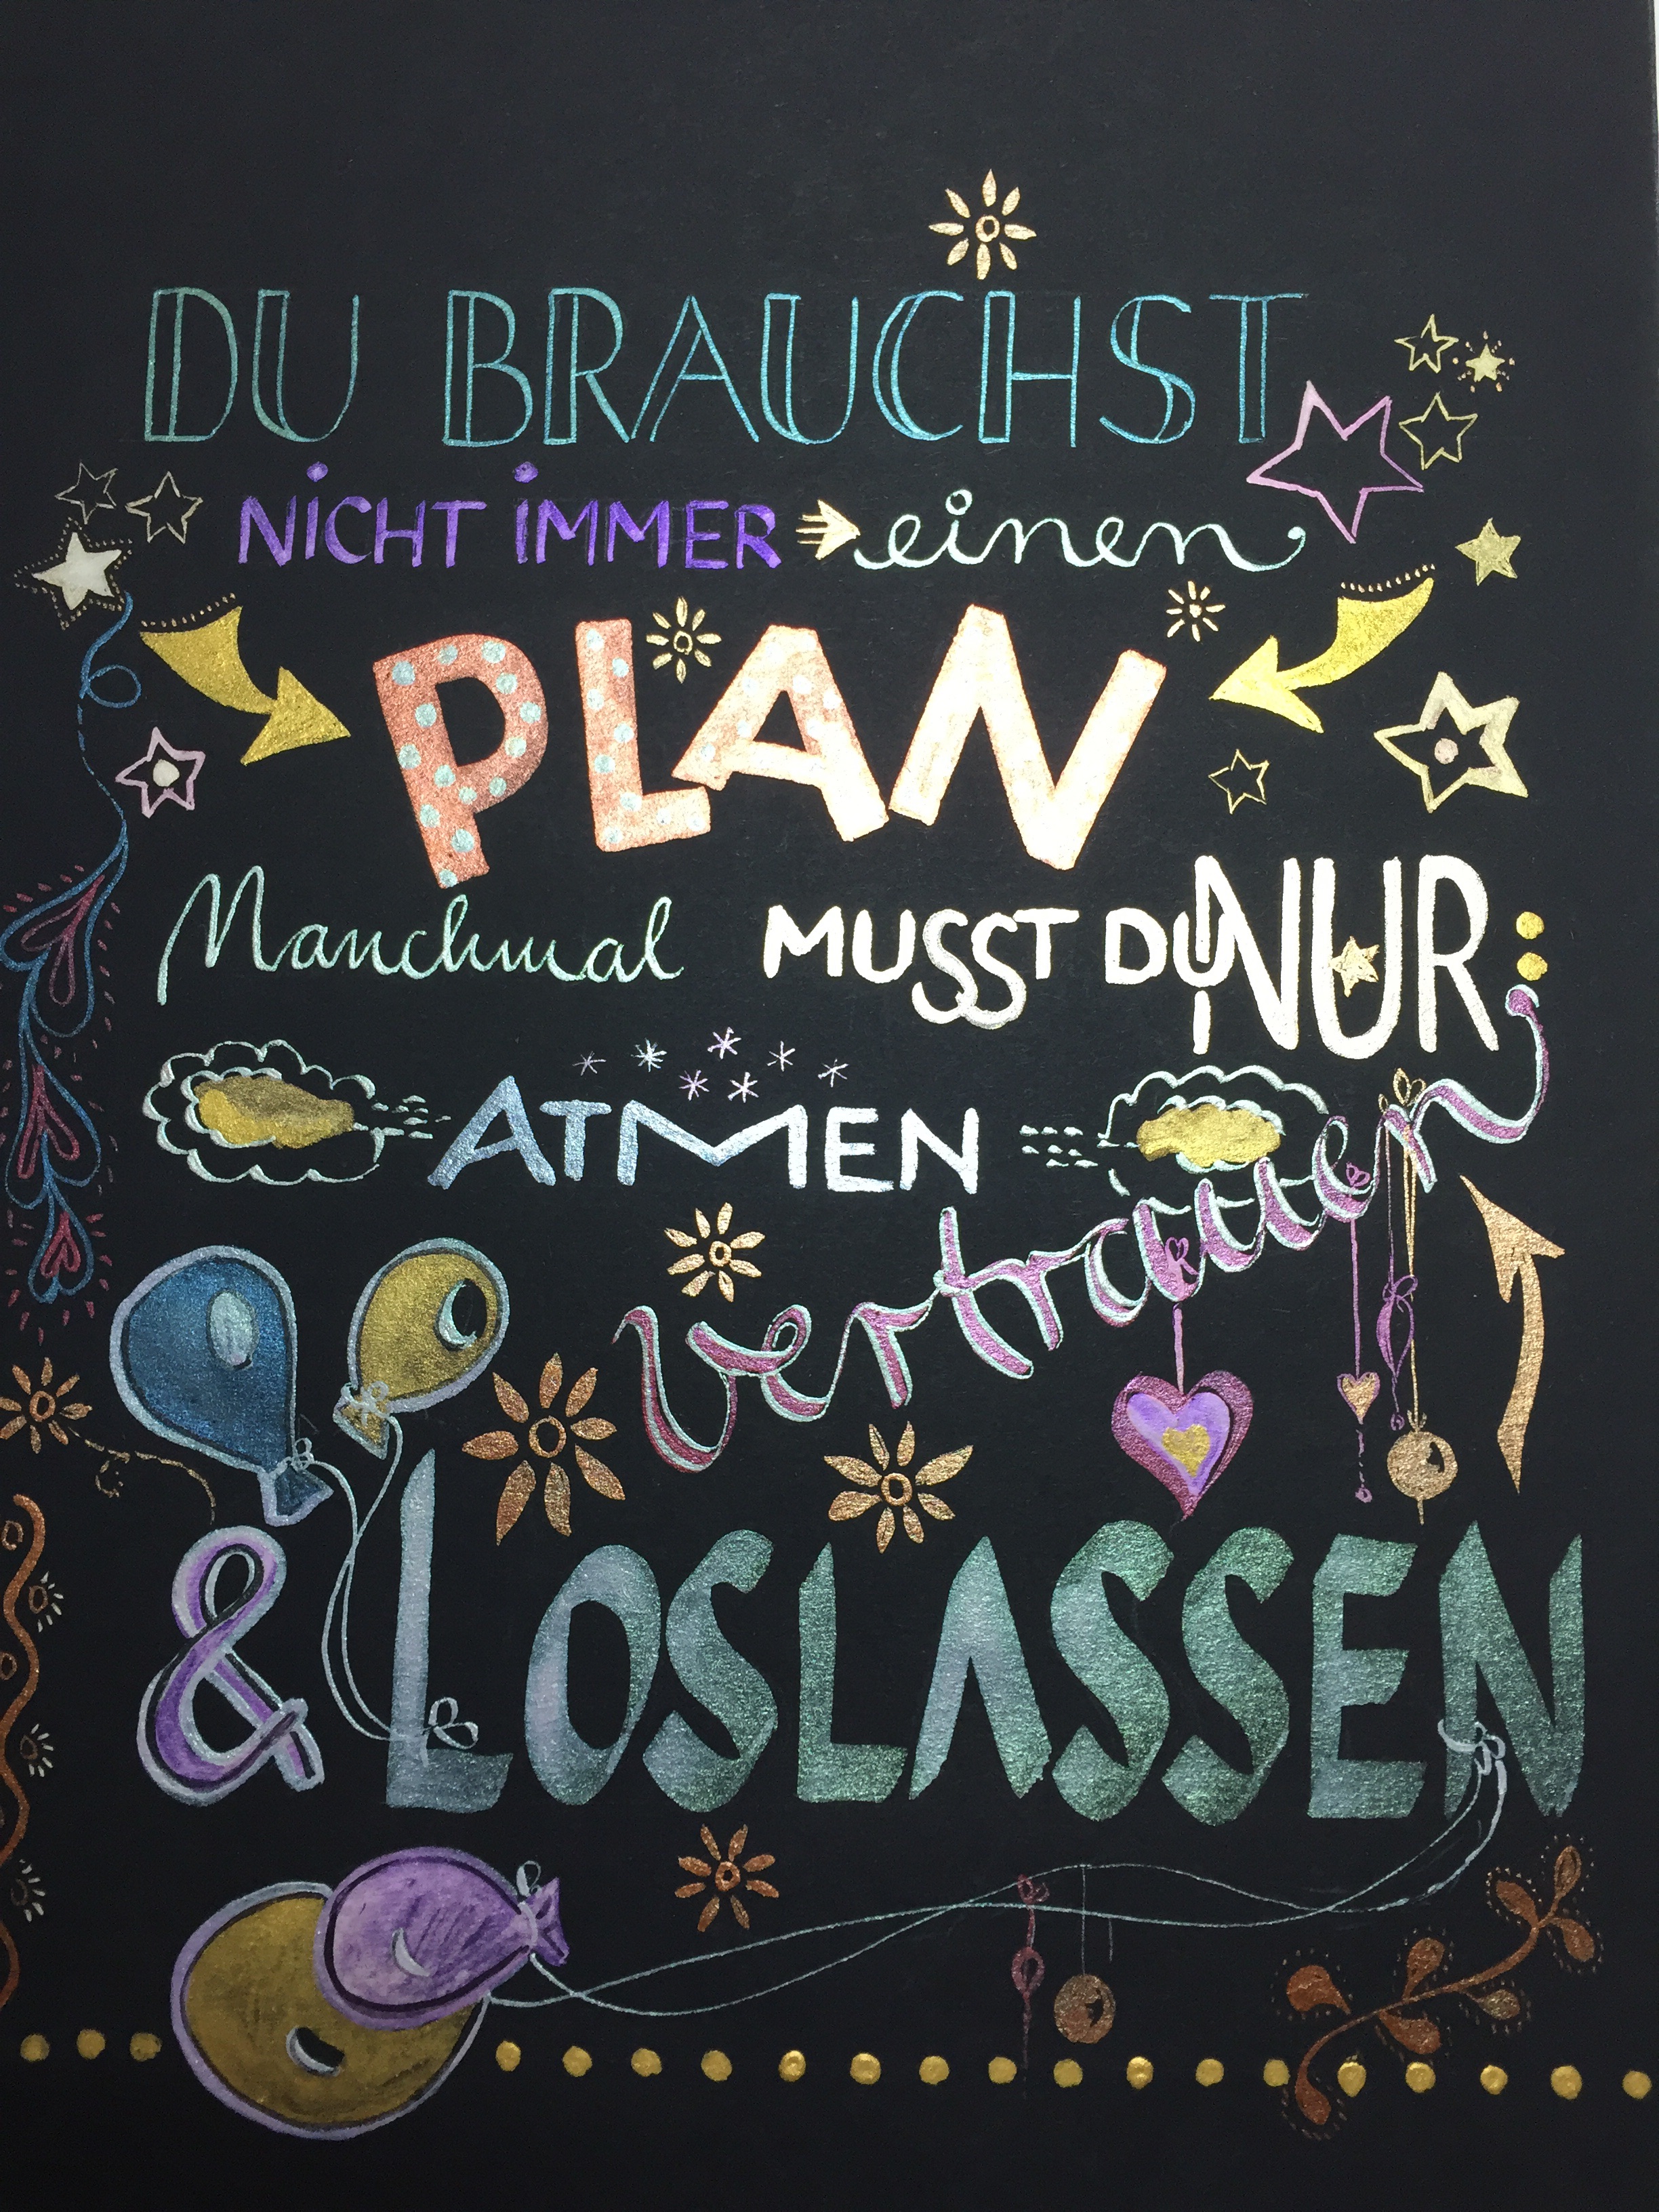 DU BRAUCHST
NiCHT iMMER einen
PLAN
Manchmal MUSST DU NUR:
ATMEN
vertrauen
& LOSLASSEN